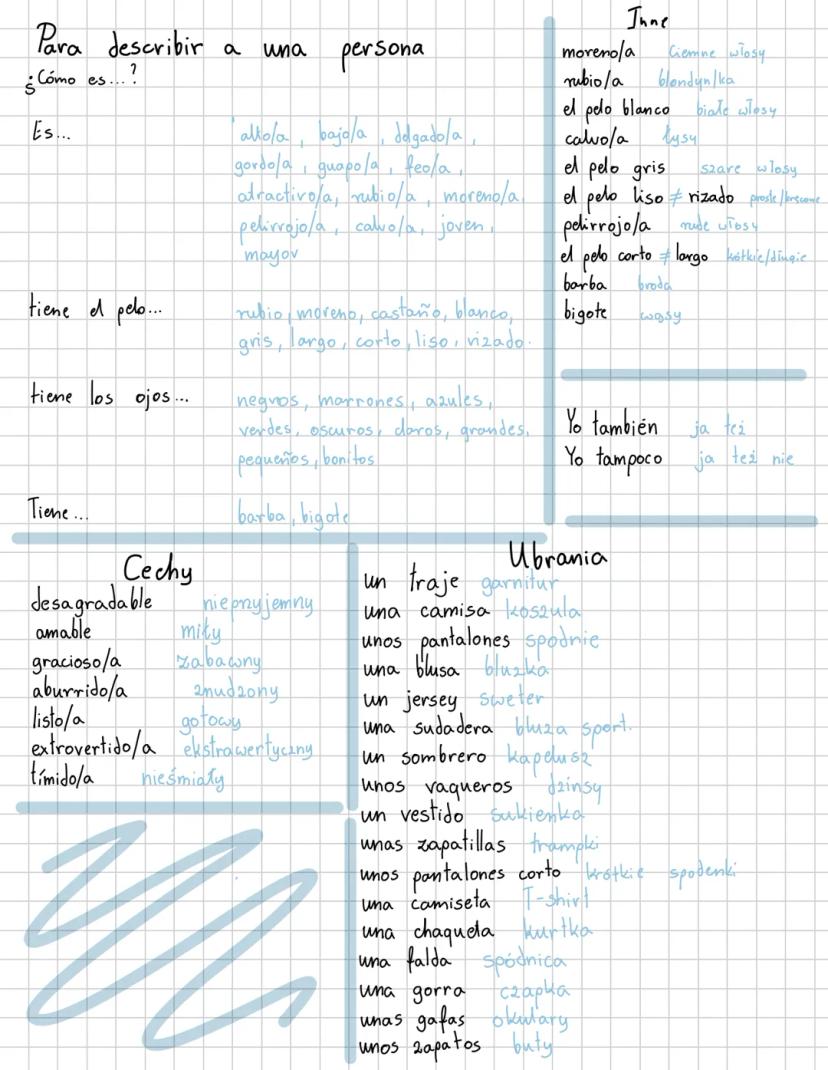 Para describir a una persona
¿Cómo es...?
Es...
alto/a, bajo/a, delgado/a,
gordo/a, guapo/a, feo/a,
atractivo/a, rubio/a, moreno/a,
pelirrojo/a, calvo/a, joven,
mayor
tiene el pelo...
rubio, moreno, castaño, blanco,
gris, largo, corto, liso, rizado.
tiene los ojos...
negros, marrones, azules,
verdes, oscuros, claros, grandes,
pequeños, bonitos
Tiene...
barba, bigote
Inne
moreno/a ciemne włosy
rubio/a blondyn/ka
el pelo blanco białe włosy
calvo/a łysy
el pelo gris szare włosy
el pelo liso ≠ rizado proste/kręcone
pelirrojo/a rude włosy
el pelo corto ≠ largo krótkie/długie
barba broda
bigote wąsy
Yo también ja też
Yo tampoco ja też nie
Cechy
desagradable nieprzyjemny
amable miły
gracioso/a zabawny
aburrido/a znudzony
listo/a gotowy
extrovertido/a ekstrawertyczny
tímido/a nieśmiały
Ubrania
un traje garnitur
una camisa koszula
unos pantalones spodnie
una blusa bluzka
un jersey sweter
una sudadera bluza sport.
un sombrero kapelusz
unos vaqueros dżinsy
un vestido sukienka
unas zapatillas trampki
unos pantalones corto krótkie spodenki
una camiseta T-shirt
una chaqueta kurtka
una falda spódnica
una gorra czapka
unas gafas okulary
unos zapatos buty